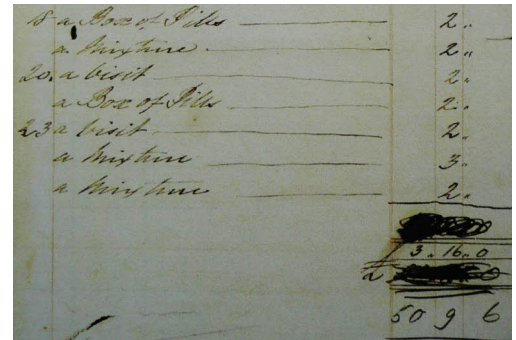 18 a Box of Pills 2 "
a Mixture 2 "
20. a Visit 2 "
a Box of Pills 2 "
23 a Visit 2 "
a Mixture 3 "
a Mixture 2 "
3 . 16 . 0
50 9 6